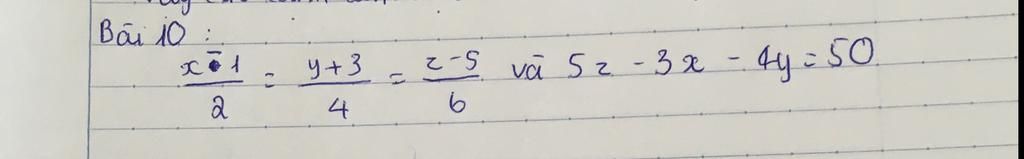 Bài 10 :
x-1/2 = y+3/4 = z-5/6 và 5z - 3x - 4y = 50